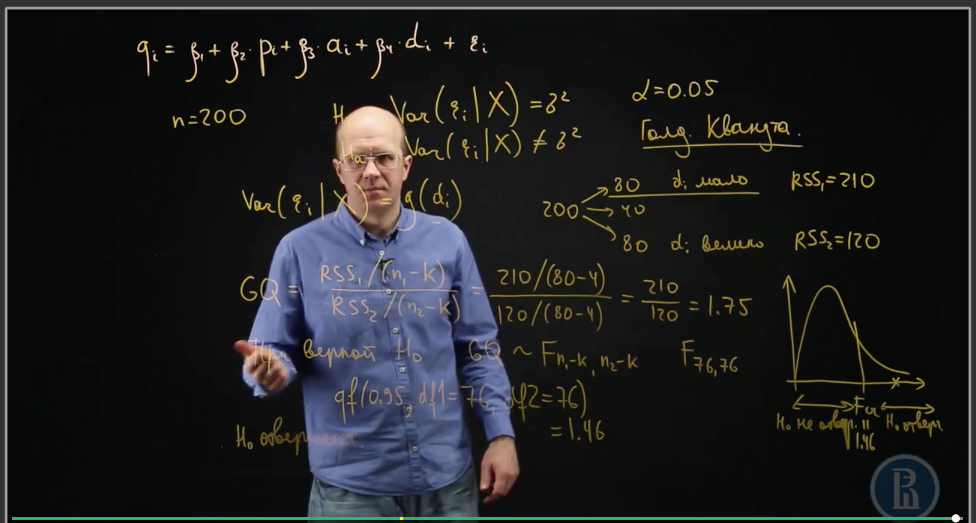 qᵢ = β₁ + β₂ · pᵢ + β₃ · aᵢ + β₄ · dᵢ + εᵢ
n=200
Var(εᵢ|X) = σ²
α=0.05
Hₐ Var(εᵢ|X) ≠ σ²
Голд. Квандта.
Var(εᵢ|X) = g(dᵢ)
200
80 dᵢ мало RSS₁=210
40
80 dᵢ велико RSS₂=120
GQ = RSS₁/(n₁-k) / RSS₂/(n₂-k) = 210/(80-4) / 120/(80-4) = 210/120 = 1.75
При верной H₀ GQ ~ Fn₁-k, n₂-k F76,76
qf(0.95, df1=76, df2=76)
= 1.46
H₀ отвер
H₀ не отверг. Fα H₀ отверг.
1.46